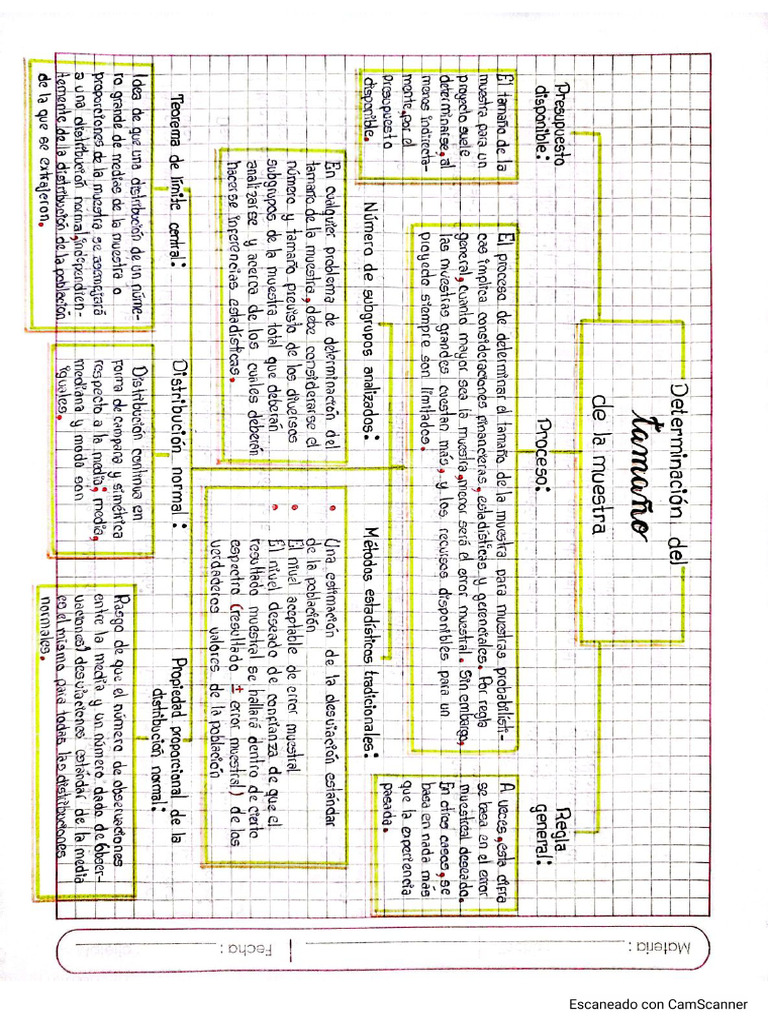 Determinación del
tamaño
de la muestra
Presupuesto
disponible:
El tamaño de la
muestra para un
proyecto suele
determinarse, al
menos indirecta-
mente, por el
presupuesto
disponible.
Proceso:
El proceso de determinar el tamaño de la muestra para muestras probabilísti-
cas implica consideraciones financieras, estadísticas y gerenciales. Por regla
general, cuanto mayor sea la muestra, menor será el error muestral. Sin embargo,
las muestras grandes cuestan más, y los recursos disponibles para un
proyecto siempre son limitados.
Regla
general:
A veces, esta cifra
se basa en el error
muestreal deseado.
En otros casos, se
basa en nada más
que la experiencia
pasada.
Número de subgrupos analizados:
En cualquier problema de determinación del
tamaño de la muestra, debe considerarse el
número y tamaño previsto de los diversos
subgrupos de la muestra total que deberán
analizarse y acerca de los cuales deberán
hacerse inferencias estadísticas.
Métodos estadísticos tradicionales:
• Una estimación de la desviación estándar
de la población
• El nivel aceptable de error muestral
• El nivel deseado de confianza de que el
resultado muestral se hallará dentro de cierto
espectro (resultado ± error muestral) de los
verdaderos valores de la población
Teorema de límite central:
Idea de que una distribución de un núme-
ro grande de medias de la muestra o
proporciones de la muestra se asemejará
a una distribución normal, independien-
temente de la distribución de la población
de la que se extrajeron.
Distribución normal:
Distribución continua en
forma de campana y simétrica
respecto a la media; media,
mediana y moda son
iguales.
Propiedad proporcional de la
distribución normal:
Rasgo de que el número de observaciones
entre la media y un número dado de 6bser-
vaciones, desviaciones estándar de la media
es el mismo para todas las distribuciones
normales.
Materia:
Fecha:
Escaneado con CamScanner